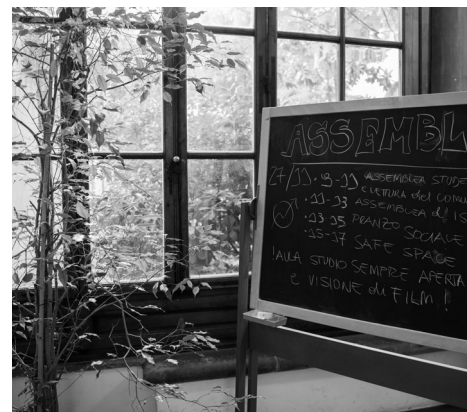 ASSEMBL
27/11 • 9-11 ASSEMBLEA STUDE
LETTURA del COMU
• 11-13 ASSEMBLEA di IS
• 13-15 PRANZO SOCIALE
• 15-17 SAFE SPACE
!AULA STUDIO SEMPRE APERTA
E VISIONE di FILM !